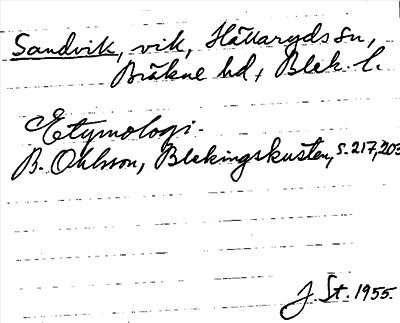 Sandvik, vik, Hällaryds sn,
Bräkne hd, Blek. l.
Etymologi.
B. Ohlsson, Blekingskusten, s. 217, 203
J. St. 1955.